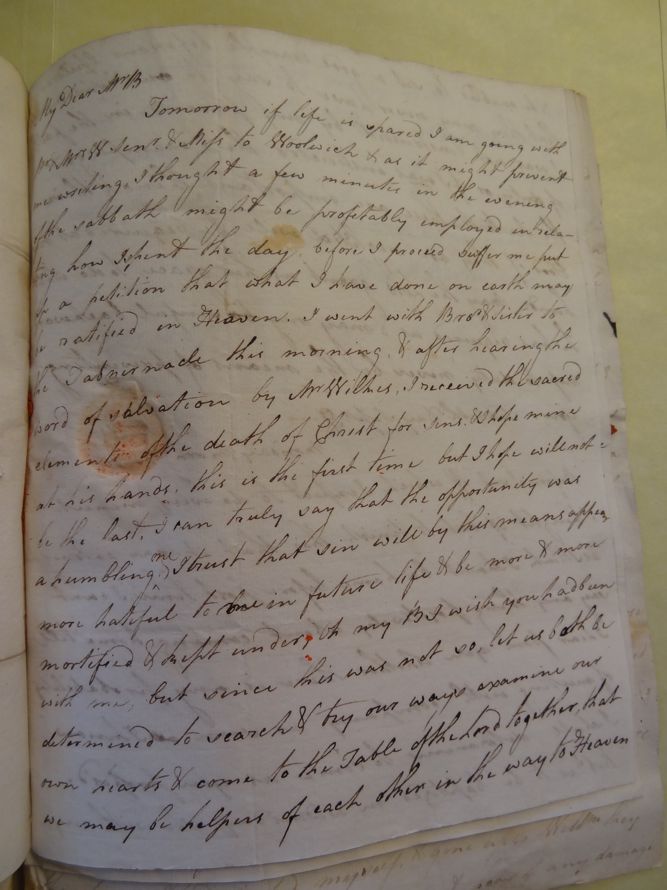 My Dear Mr B
Tomorrow if life is spared I am going with
Mr & Mrs W Senr & Miss to Woolwich & as it might prevent
me writing, I thought a few minutes in the evening
of the sabbath might be profitably employed in rela-
ting how I spent the day before I proceed suffer me put
up a petition that what I have done on earth may
be ratified in Heaven. I went with Bror & Sister to
the Tabernacle this morning, & after hearing the
word of salvation by Mr Wilkes, I received the sacred
elements of the death of Christ for sens, & hope mine
at his hands, this is the first time but I hope will not
be the last, I can truly say that the opportunity was
a humbling one, I trust that sin will by this means appear
more hateful to me in future life & be more & more
mortified & kept under, Oh my B I wish you had been
with me, but since this was not so, let us both be
determined to search & try our ways examine our
own hearts & come to the Table of the Lord together, that
we may be helpers of each other in the way to Heaven
of any damage